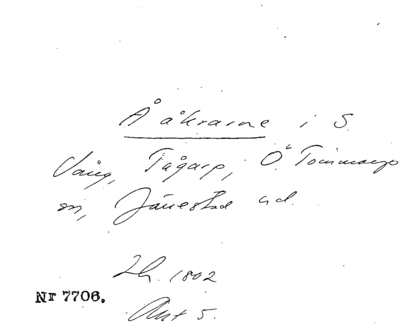 Å åkrarne i S.
Vång, Tågarp, Ö. Tommarp
sn, Järrestad hd.
Lh. 1802
Nr 7706.
Akt 5.